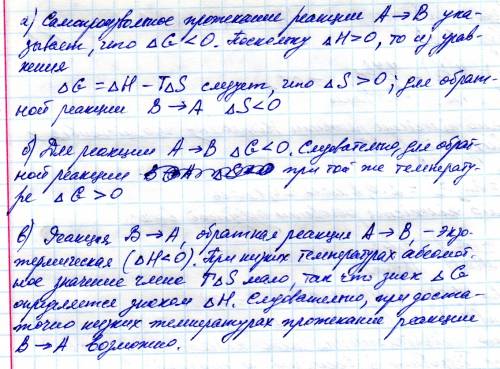 а) Самопроизвольное протекание реакции А→В ука-
зывает, что ΔG<0. Поскольку ΔH>0, то из урав-
нения
ΔG = ΔH – TΔS следует, что ΔS>0; для обрат-
ной реакции В→А ΔS<0
б) Для реакции А→В ΔG<0. Следовательно, для обрат-
ной реакции при той же температу-
ре ΔG>0
в) Реакция В→А, обратная реакции А→В, – экзо-
термическая (ΔH<0). При низких температурах абсолют-
ное значение члена TΔS мало, так что знак ΔG
определяется знаком ΔH. Следовательно, при доста-
точно низких температурах протекание реакции
В→А возможно.